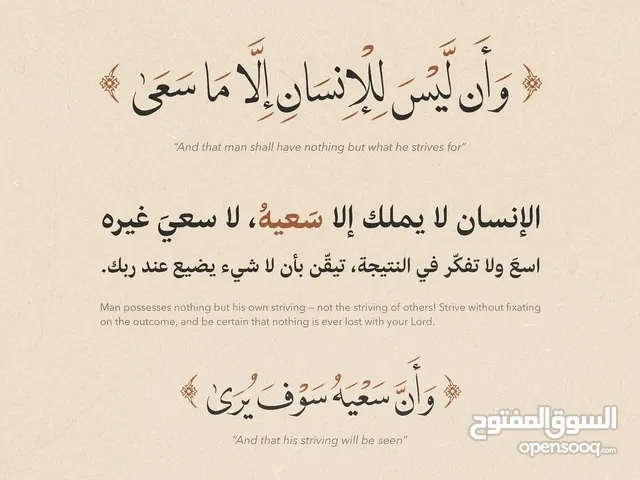 ﴿ وَأَن لَّيْسَ لِلْإِنسَانِ إِلَّا مَا سَعَىٰ ﴾
“And that man shall have nothing but what he strives for”
الإنسان لا يملك إلا سَعيهُ، لا سعيَ غيره
اسعَ ولا تفكّر في النتيجة، تيقّن بأن لا شيء يضيع عند ربك.
Man possesses nothing but his own striving — not the striving of others! Strive without fixating
on the outcome, and be certain that nothing is ever lost with your Lord.
﴿ وَأَنَّ سَعْيَهُ سَوْفَ يُرَىٰ ﴾
“And that his striving will be seen”
السوق المفتوح
opensooq.com